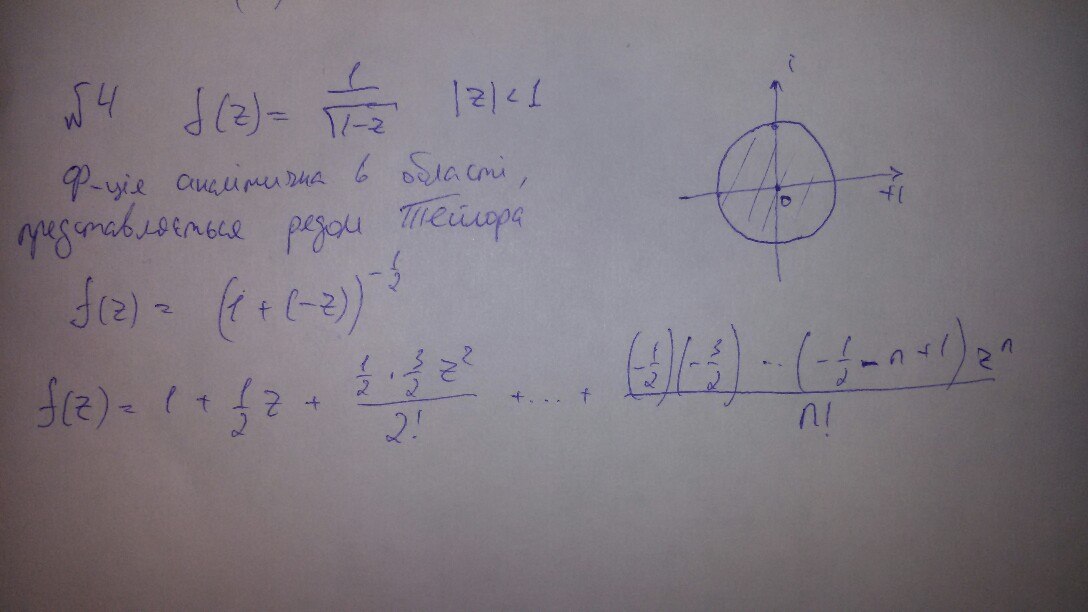 №4 f(z) = 1/√(1-z) |z| < 1
Ф-ція аналітична в області,
представляється рядом Тейлора
f(z) = (1 + (-z))^(-1/2)
f(z) = 1 + 1/2 z + (1/2 · 3/2 z²)/2! + ... + ((-1/2)(-3/2) ... (-1/2 - n + 1) zⁿ)/n!
i
0
+1